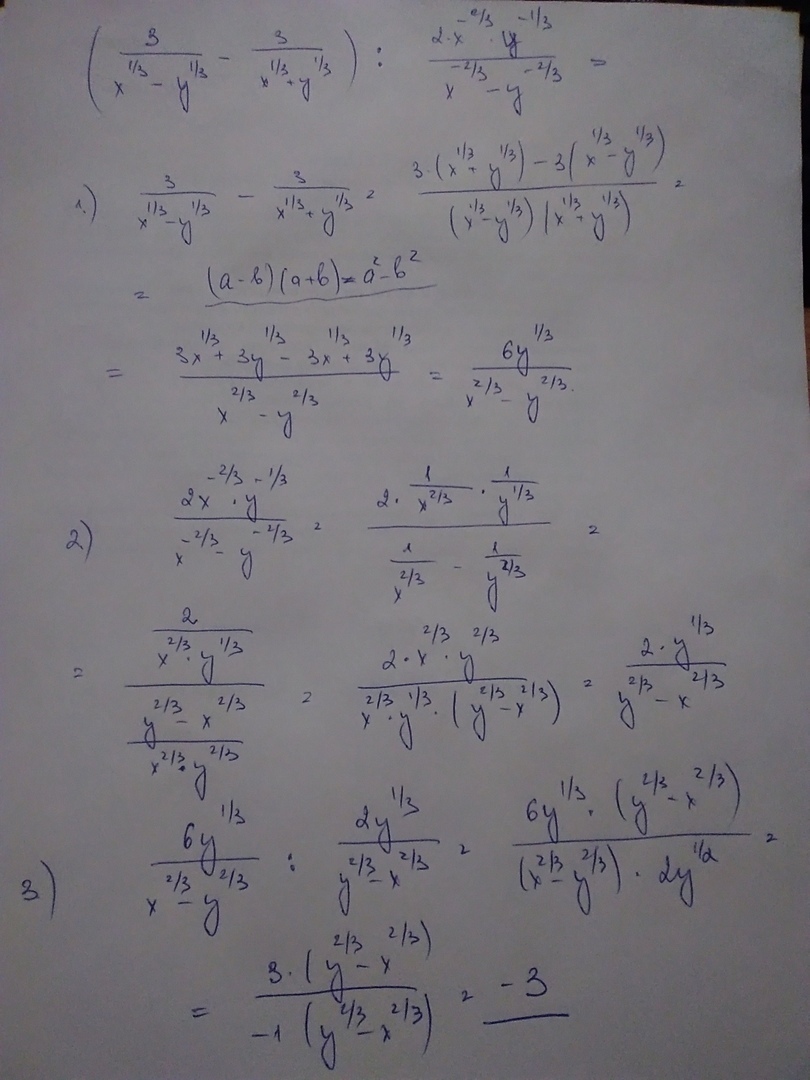 (3/(x^{1/3} - y^{1/3}) - 3/(x^{1/3} + y^{1/3})) : (2·x^{-2/3}·y^{-1/3})/(x^{-2/3} - y^{-2/3}) =
1.) 3/(x^{1/3} - y^{1/3}) - 3/(x^{1/3} + y^{1/3}) = (3·(x^{1/3} + y^{1/3}) - 3(x^{1/3} - y^{1/3}))/((x^{1/3} - y^{1/3})(x^{1/3} + y^{1/3})) =
= (a-b)(a+b) = a^2 - b^2
= (3x^{1/3} + 3y^{1/3} - 3x^{1/3} + 3y^{1/3})/(x^{2/3} - y^{2/3}) = 6y^{1/3}/(x^{2/3} - y^{2/3}).
2) (2x^{-2/3}·y^{-1/3})/(x^{-2/3} - y^{-2/3}) = (2·1/x^{2/3}·1/y^{1/3})/(1/x^{2/3} - 1/y^{2/3}) =
= (2/(x^{2/3}·y^{1/3}))/((y^{2/3} - x^{2/3})/(x^{2/3}·y^{2/3})) = (2·x^{2/3}·y^{2/3})/(x^{2/3}·y^{1/3}·(y^{2/3} - x^{2/3})) = (2·y^{1/3})/(y^{2/3} - x^{2/3})
3) 6y^{1/3}/(x^{2/3} - y^{2/3}) : 2y^{1/3}/(y^{2/3} - x^{2/3}) = (6y^{1/3}·(y^{2/3} - x^{2/3}))/((x^{2/3} - y^{2/3})·2y^{1/2}) =
= (3·(y^{2/3} - x^{2/3}))/(-1(y^{2/3} - x^{2/3})) = -3